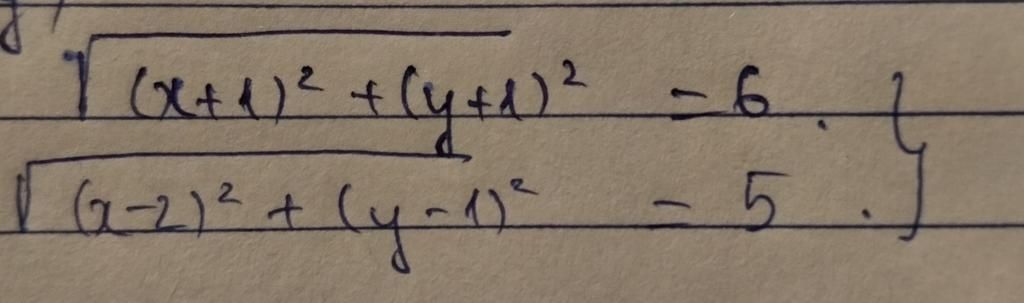 √(x+1)² + (y+1)² = 6 . }
√(x-2)² + (y-1)² = 5 .